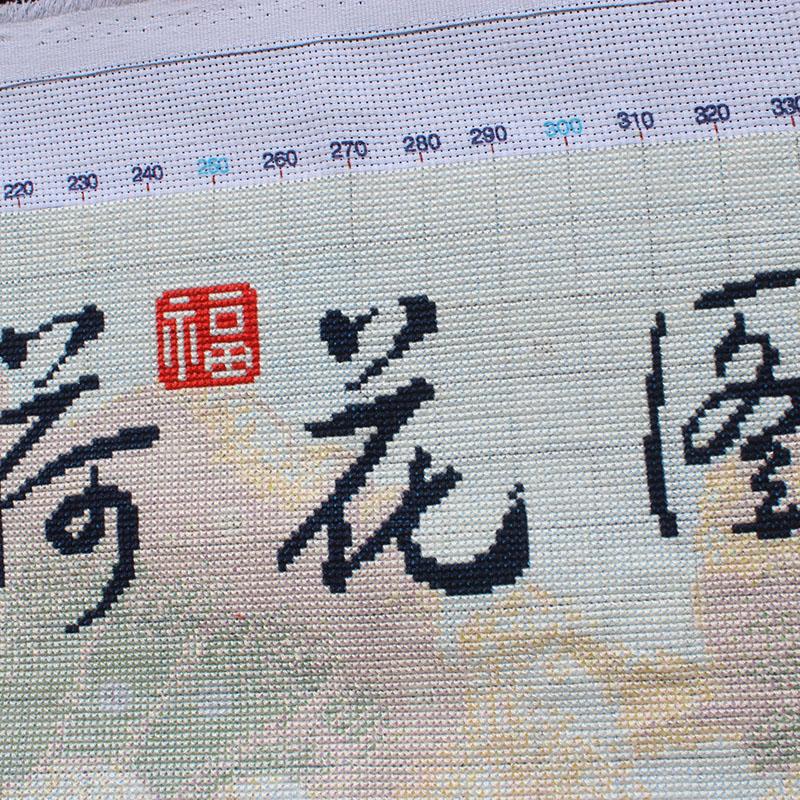 220 230 240 250 260 270 280 290 300 310 320 330
福
荷花圖